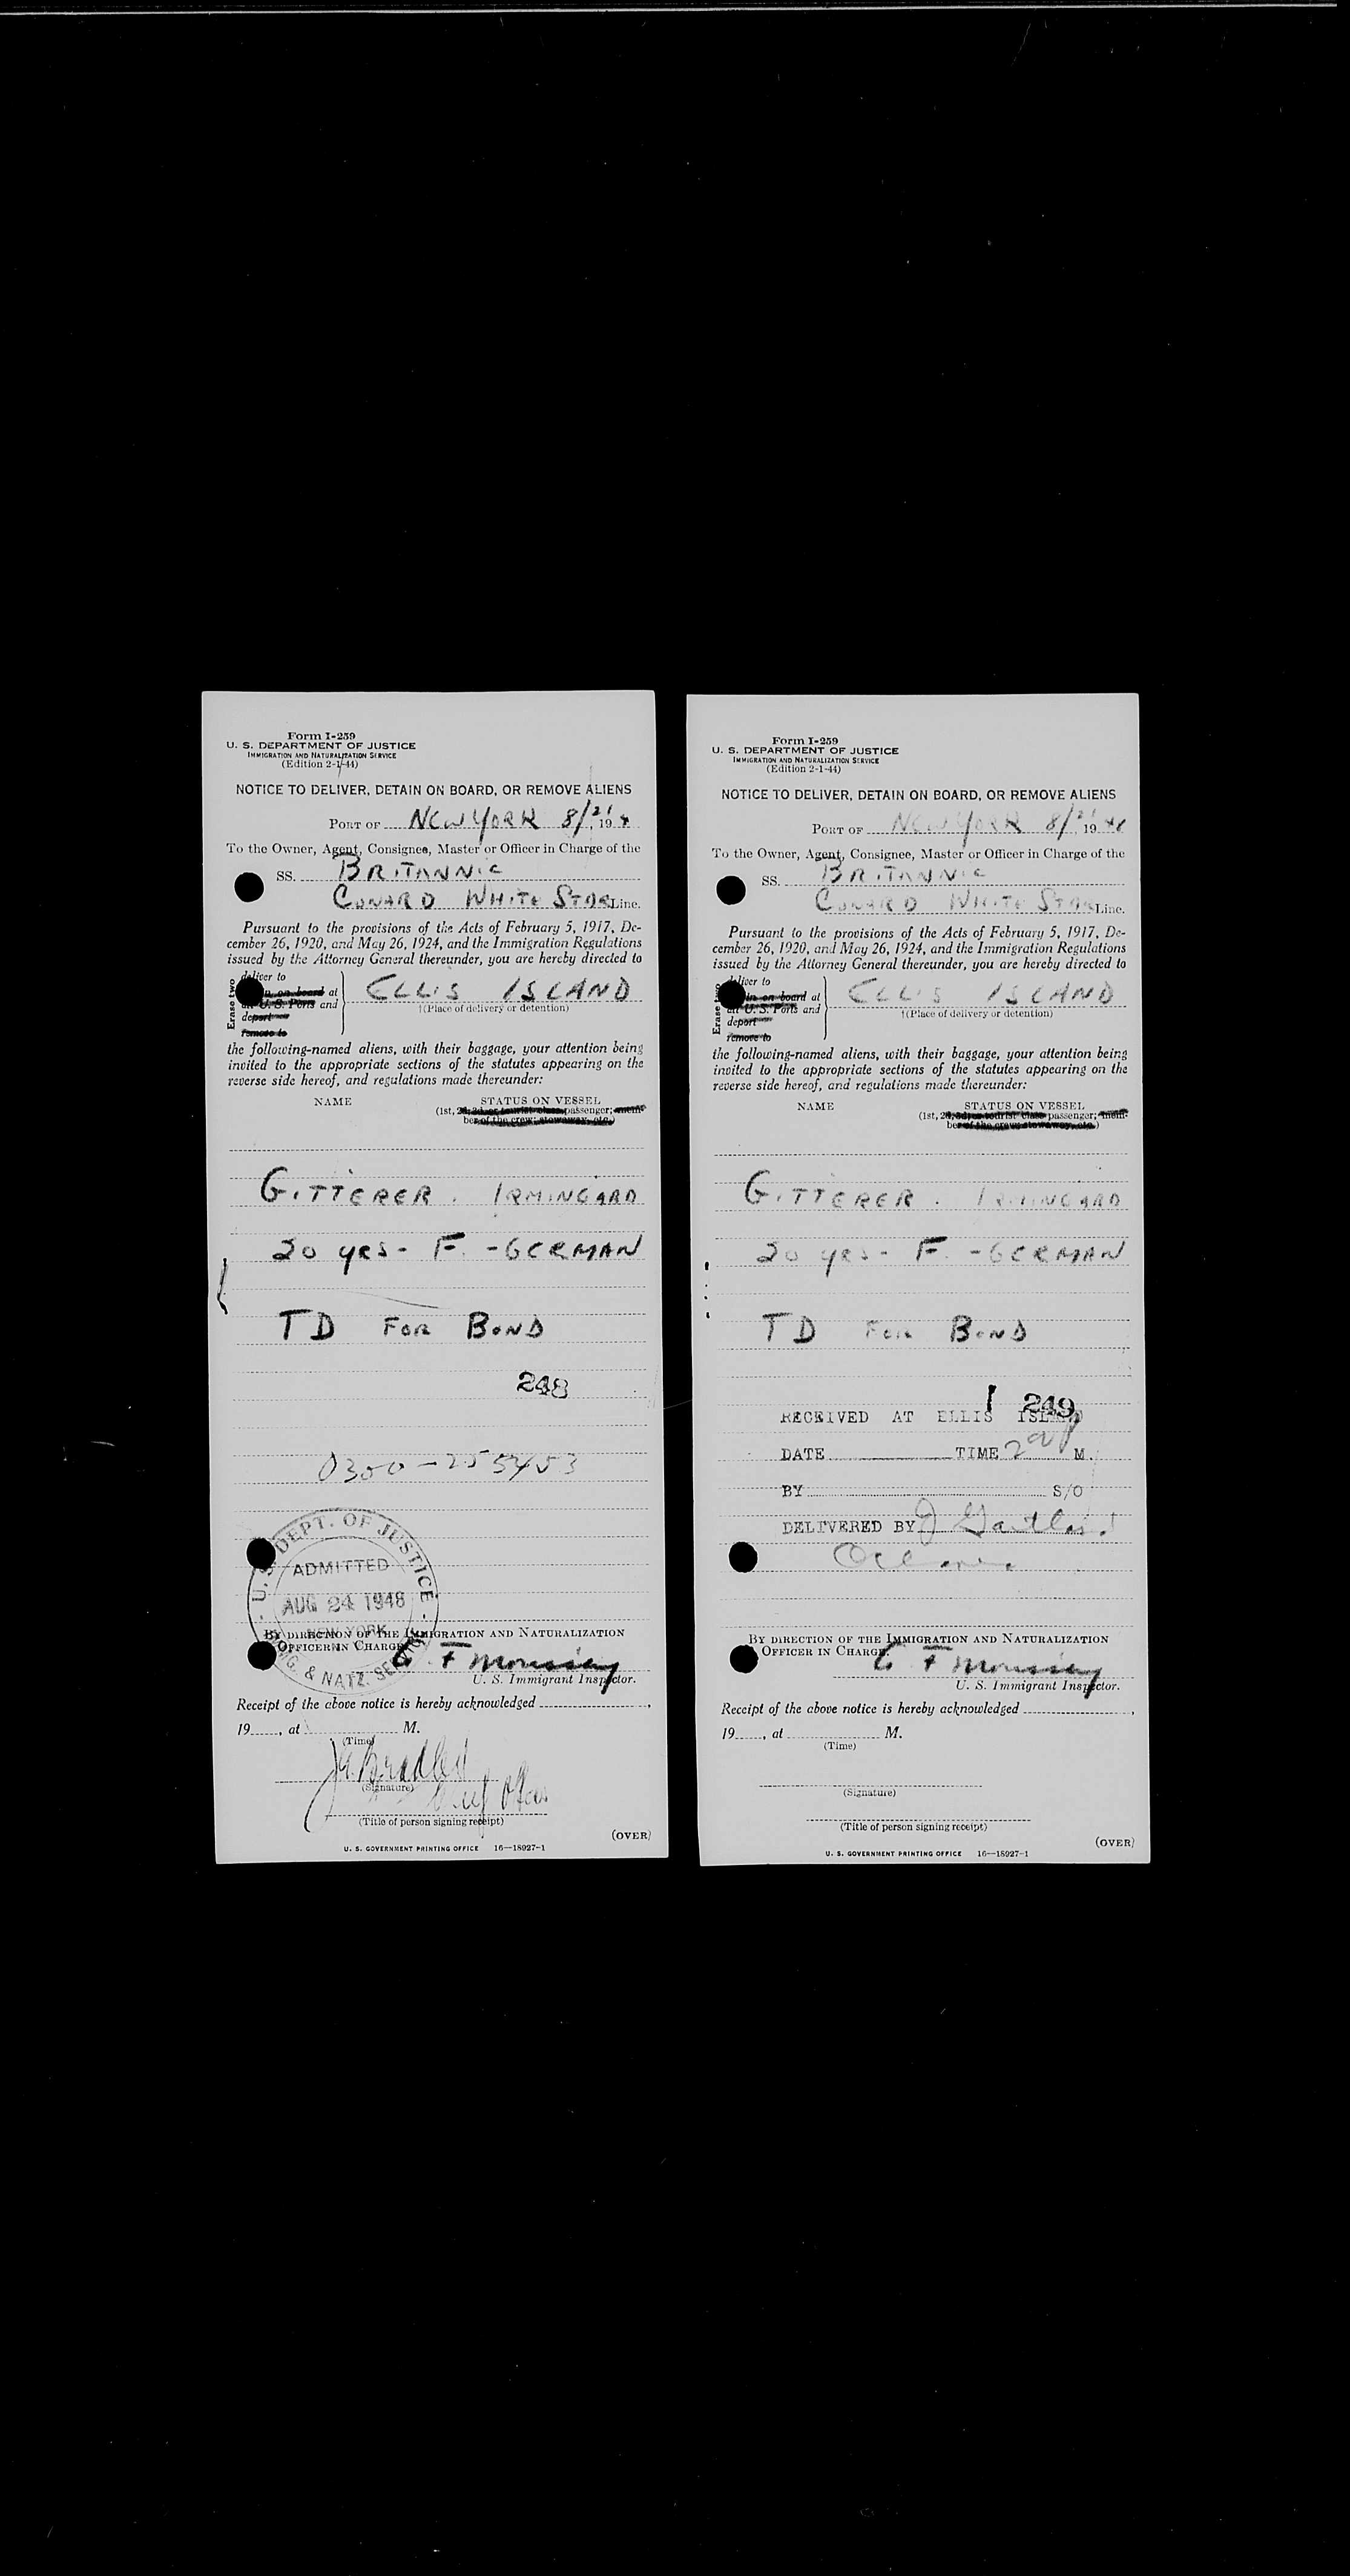 Form I-259
U. S. DEPARTMENT OF JUSTICE
IMMIGRATION AND NATURALIZATION SERVICE
(Edition 2-1-44)
NOTICE TO DELIVER, DETAIN ON BOARD, OR REMOVE ALIENS
PORT OF NEW YORK 8/21, 194
To the Owner, Agent, Consignee, Master or Officer in Charge of the
SS. BRITANNIC
CUNARD WHITE STAR Line.
Pursuant to the provisions of the Acts of February 5, 1917, De-
cember 26, 1920, and May 26, 1924, and the Immigration Regulations
issued by the Attorney General thereunder, you are hereby directed to
Erase two
deliver to
on board at
U. S. Ports and
deport
remove to
ELLIS ISLAND
†(Place of delivery or detention)
the following-named aliens, with their baggage, your attention being
invited to the appropriate sections of the statutes appearing on the
reverse side hereof, and regulations made thereunder:
NAME STATUS ON VESSEL
(1st, 2d, 3d, or tourist class passenger; mem-
ber of the crew; stowaway, etc.)
GITTERER. IRMINGARD
20 yrs - F. - GERMAN
TD FOR BOND
248
0300-255453
U. S. DEPT. OF JUSTICE
ADMITTED
AUG 24 1948
NEW YORK
IMMIG. & NATZ. SERVICE
BY DIRECTION OF THE IMMIGRATION AND NATURALIZATION
OFFICER IN CHARGE.
F
U. S. Immigrant Inspector.
Receipt of the above notice is hereby acknowledged
19, at M.
(Time)
Bradley
(Signature)
(Title of person signing receipt)
(OVER)
U. S. GOVERNMENT PRINTING OFFICE 16—18927-1
Form I-259
U. S. DEPARTMENT OF JUSTICE
IMMIGRATION AND NATURALIZATION SERVICE
(Edition 2-1-44)
NOTICE TO DELIVER, DETAIN ON BOARD, OR REMOVE ALIENS
PORT OF NEW YORK 8/21, 1948
To the Owner, Agent, Consignee, Master or Officer in Charge of the
SS. BRITANNIC
CUNARD WHITE STAR Line.
Pursuant to the provisions of the Acts of February 5, 1917, De-
cember 26, 1920, and May 26, 1924, and the Immigration Regulations
issued by the Attorney General thereunder, you are hereby directed to
Erase two
deliver to
in on board at
all U. S. Ports and
deport
remove to
ELLIS ISLAND
†(Place of delivery or detention)
the following-named aliens, with their baggage, your attention being
invited to the appropriate sections of the statutes appearing on the
reverse side hereof, and regulations made thereunder:
NAME STATUS ON VESSEL
(1st, 2d, 3d, or tourist class passenger; mem-
ber of the crew; stowaway, etc.)
GITTERER. IRMINGARD
20 yrs - F. - GERMAN
TD FOR BOND
249
RECEIVED AT ELLIS ISLAND
DATE TIME M.
BY S/O
DELIVERED BY J
BY DIRECTION OF THE IMMIGRATION AND NATURALIZATION
OFFICER IN CHARGE.
F
U. S. Immigrant Inspector.
Receipt of the above notice is hereby acknowledged
19, at M.
(Time)
(Signature)
(Title of person signing receipt)
(OVER)
U. S. GOVERNMENT PRINTING OFFICE 16—18927-1